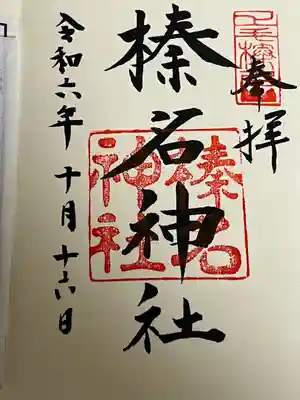 奉拝
榛名神社
榛名
神社
令和六年十月十六日